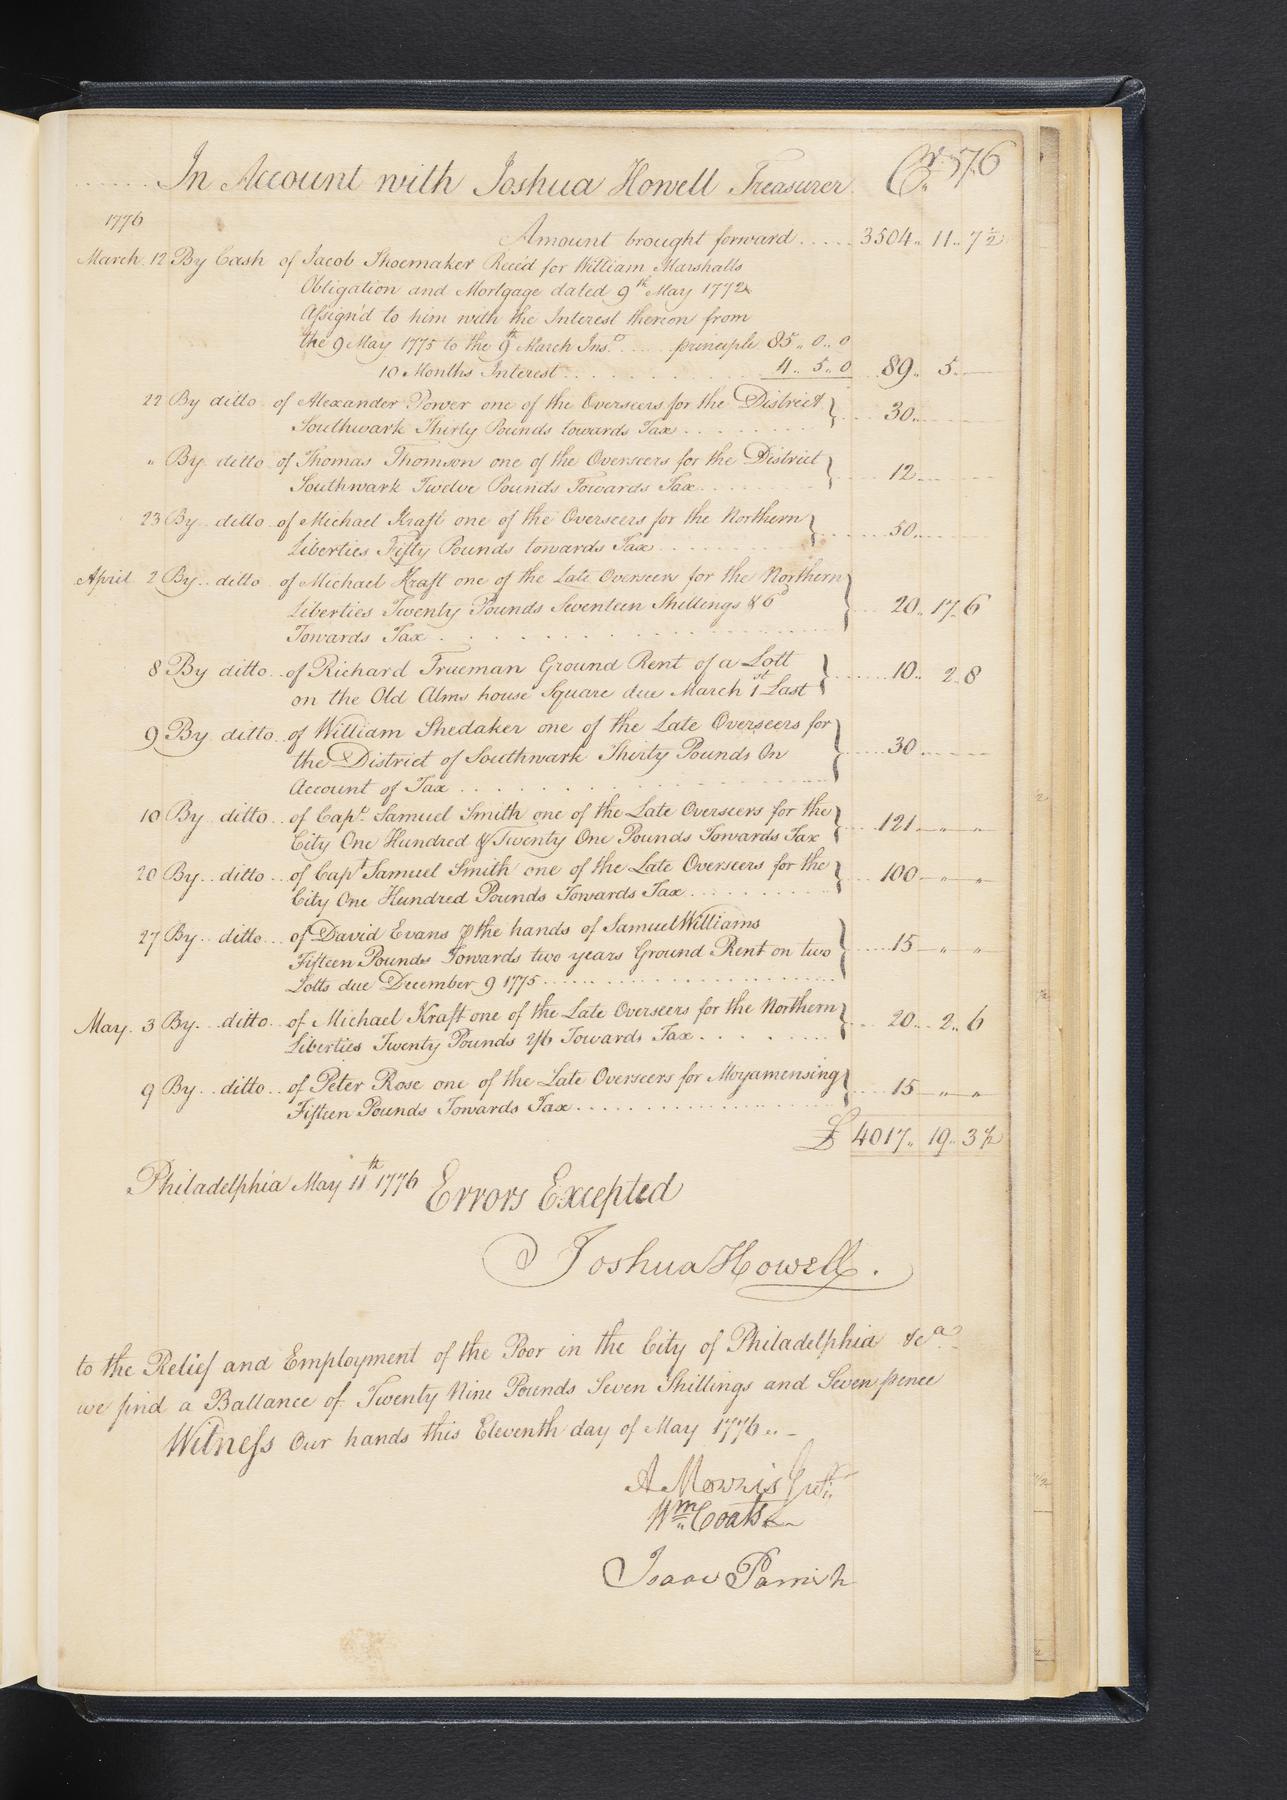 In Account with Joshua Howell Treasurer Cr. 576
1776
Amount brought forward ..... 3504 „ 11 „ 7 ½
March 12 By Cash of Jacob Shoemaker Rece'd for William Marshalls
Obligation and Mortgage dated 9th May 1772
Assign'd to him with the Interest thereon from
the 9 May 1775 to the 9th March Inso. .... principle 85 „ 0 „ 0
10 Months Interest . . . . 4 „ 5 „ 0 89 „ 5 —
22 By ditto of Alexander Power one of the Overseers for the District
Southwark Thirty Pounds towards Tax . . . . 30
„ By ditto of Thomas Thomson one of the Overseers for the District
Southwark Twelve Pounds Towards Tax . . . 12
23 By ditto of Michael Kraft one of the Overseers for the Northern
Liberties Fifty Pounds towards Tax . . . . 50
April 2 By ditto of Michael Kraft one of the Late Overseers for the Northern
Liberties Twenty Pounds Seventeen Shillings & 6d 20 „ 17 „ 6
Towards Tax . . . .
8 By ditto of Richard Trueman Ground Rent of a Lott
on the Old Alms house Square due March 1st Last 10 „ 2 „ 8
9 By ditto of William Shedaker one of the Late Overseers for
the District of Southwark Thirty Pounds On 30
Account of Tax . . . .
10 By ditto of Capt. Samuel Smith one of the Late Overseers for the
City One Hundred & Twenty One Pounds Towards Tax 121 — „ — „
20 By ditto of Capt Samuel Smith one of the Late Overseers for the
City One Hundred Pounds Towards Tax . . . . 100 — „ — „
27 By ditto of David Evans ⅌ the hands of Samuel Williams
Fifteen Pounds Towards two years Ground Rent on two 15 — „ — „
Lotts due December 9 1775 . . . .
May 3 By ditto of Michael Kraft one of the Late Overseers for the Northern
Liberties Twenty Pounds 2/6 Towards Tax . . . . 20 „ 2 „ 6
9 By ditto of Peter Rose one of the Late Overseers for Moyamensing
Fifteen Pounds Towards Tax . . . . 15 — „ — „
£ 4017 „ 19 „ 3 ½
Philadelphia May 11th 1776 Errors Excepted
Joshua Howell.
to the Relief and Employment of the Poor in the City of Philadelphia &ca.
we find a Ballance of Twenty Nine Pounds Seven Shillings and Seven pence
Witness Our hands this Eleventh day of May 1776 „ —
A Morris Junr.
Wm. Coats
Isaac Parrish